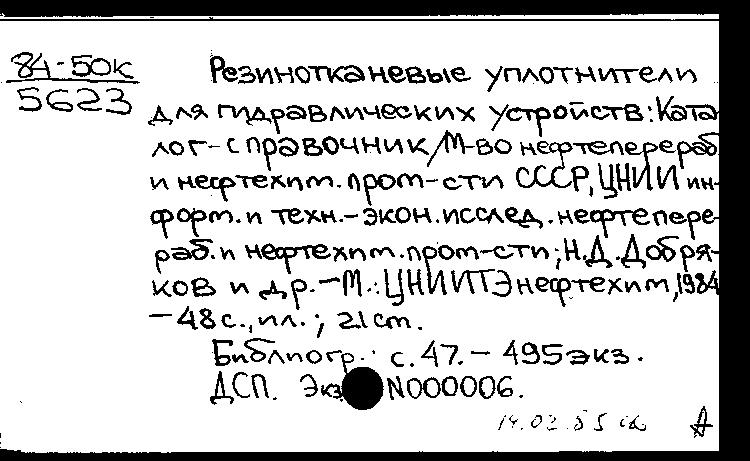 84-50к
5623
Резинотканевые уплотнители
для гидравлических устройств: Ката-
лог-справочник/М-во нефтеперераб.
и нефтехим. пром-сти СССР, ЦНИИ ин-
форм. и техн.-экон. исслед. нефтепере-
раб. и нефтехим. пром-сти; Н.Д. Добря-
ков и др. – М.: ЦНИИТЭнефтехим, 1984
– 48 с., ил.; 21 см.
Библиогр.: с. 47. – 495 экз.
ДСП. Экз N000006.
14.02.85